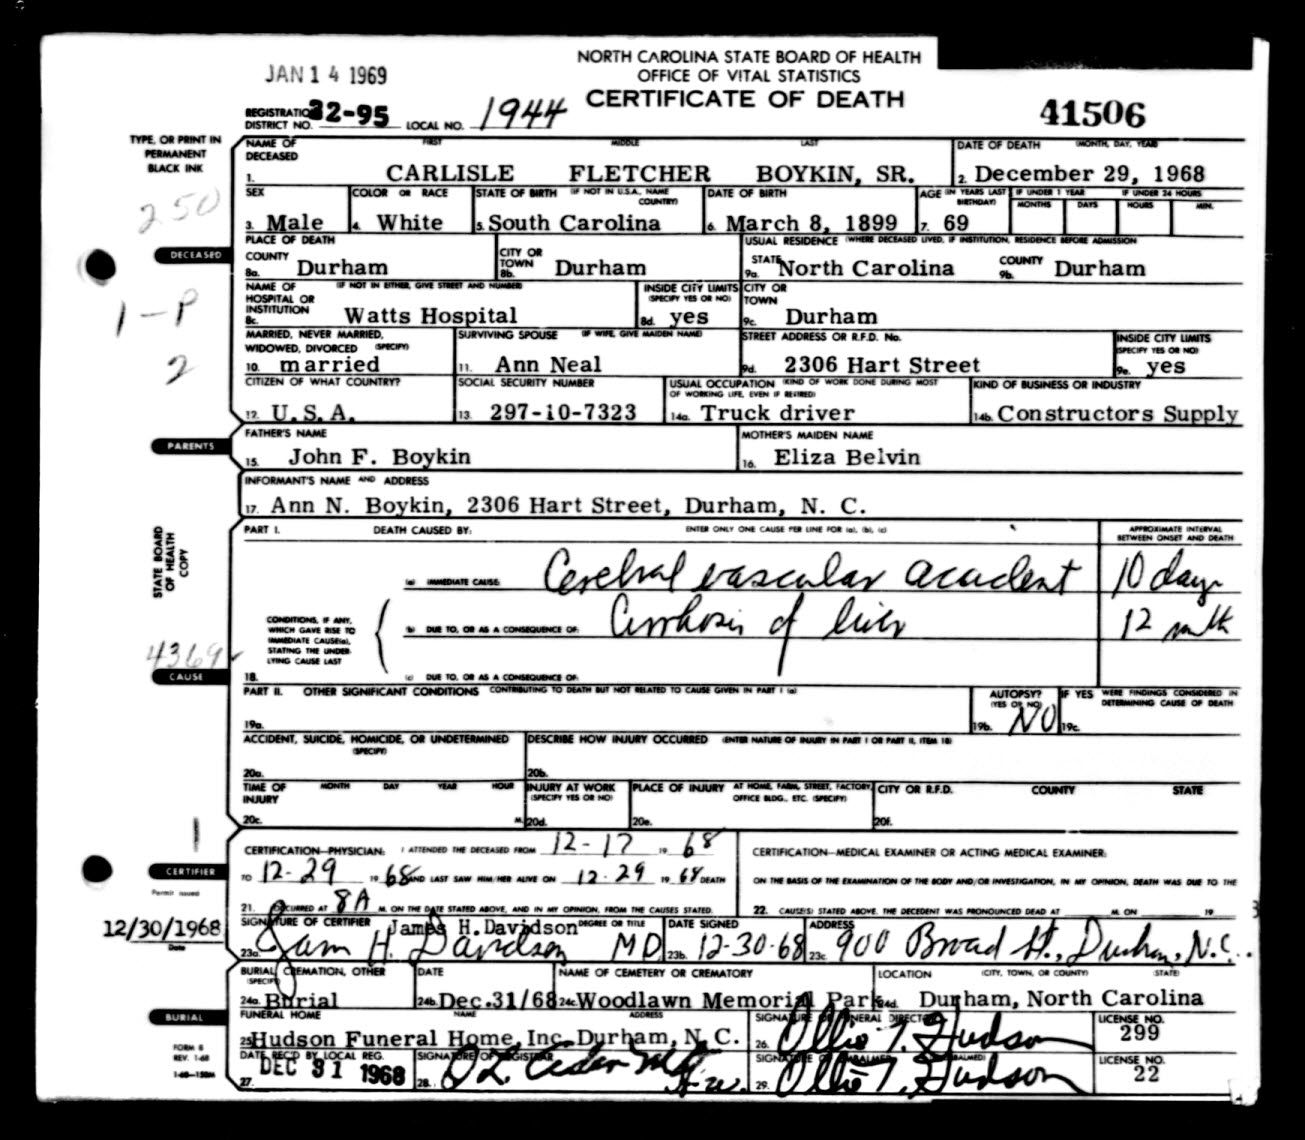 JAN 14 1969
NORTH CAROLINA STATE BOARD OF HEALTH
OFFICE OF VITAL STATISTICS
CERTIFICATE OF DEATH
REGISTRATION DISTRICT NO. 32-95 LOCAL NO. 1944 41506
TYPE, OR PRINT IN PERMANENT BLACK INK
250
NAME OF DECEASED FIRST MIDDLE LAST DATE OF DEATH (MONTH, DAY, YEAR)
1. CARLISLE FLETCHER BOYKIN, SR. 2. December 29, 1968
SEX COLOR OR RACE STATE OF BIRTH (IF NOT IN U.S.A., NAME COUNTRY) DATE OF BIRTH AGE (IN YEARS LAST BIRTHDAY) IF UNDER 1 YEAR IF UNDER 24 HOURS
MONTHS DAYS HOURS MIN.
3. Male 4. White 5. South Carolina 6. March 8, 1899 7. 69
DECEASED
PLACE OF DEATH USUAL RESIDENCE (WHERE DECEASED LIVED, IF INSTITUTION, RESIDENCE BEFORE ADMISSION
COUNTY 8a. Durham CITY OR TOWN 8b. Durham STATE 9a. North Carolina COUNTY 9b. Durham
1-P
NAME OF HOSPITAL OR INSTITUTION (IF NOT IN EITHER, GIVE STREET AND NUMBER) INSIDE CITY LIMITS (SPECIFY YES OR NO) CITY OR TOWN
8c. Watts Hospital 8d. yes 9c. Durham
2
MARRIED, NEVER MARRIED, WIDOWED, DIVORCED (SPECIFY) SURVIVING SPOUSE (IF WIFE, GIVE MAIDEN NAME) STREET ADDRESS OR R.F.D. No. INSIDE CITY LIMITS (SPECIFY YES OR NO)
10. married 11. Ann Neal 9d. 2306 Hart Street 9e. yes
CITIZEN OF WHAT COUNTRY? SOCIAL SECURITY NUMBER USUAL OCCUPATION (KIND OF WORK DONE DURING MOST OF WORKING LIFE, EVEN IF RETIRED) KIND OF BUSINESS OR INDUSTRY
12. U.S.A. 13. 297-10-7323 14a. Truck driver 14b. Constructors Supply
PARENTS
FATHER'S NAME MOTHER'S MAIDEN NAME
15. John F. Boykin 16. Eliza Belvin
INFORMANT'S NAME AND ADDRESS
17. Ann N. Boykin, 2306 Hart Street, Durham, N. C.
STATE BOARD OF HEALTH COPY
PART I. DEATH CAUSED BY: ENTER ONLY ONE CAUSE PER LINE FOR (a), (b), (c) APPROXIMATE INTERVAL BETWEEN ONSET AND DEATH
(a) IMMEDIATE CAUSE: Cerebral vascular accident 10 days
CONDITIONS, IF ANY, WHICH GAVE RISE TO IMMEDIATE CAUSE(a), STATING THE UNDERLYING CAUSE LAST
(b) DUE TO, OR AS A CONSEQUENCE OF: Cirrhosis of liver 12 mnth
4369
CAUSE
18. (c) DUE TO, OR AS A CONSEQUENCE OF:
PART II. OTHER SIGNIFICANT CONDITIONS CONTRIBUTING TO DEATH BUT NOT RELATED TO CAUSE GIVEN IN PART I (a) AUTOPSY? (YES OR NO) IF YES WERE FINDINGS CONSIDERED IN DETERMINING CAUSE OF DEATH
19a. 19b. NO 19c.
ACCIDENT, SUICIDE, HOMICIDE, OR UNDETERMINED (SPECIFY) DESCRIBE HOW INJURY OCCURRED (ENTER NATURE OF INJURY IN PART I OR PART II, ITEM 18)
20a. 20b.
TIME OF INJURY MONTH DAY YEAR HOUR INJURY AT WORK (SPECIFY YES OR NO) PLACE OF INJURY AT HOME, FARM, STREET, FACTORY, OFFICE BLDG., ETC. (SPECIFY) CITY OR R.F.D. COUNTY STATE
20c. M. 20d. 20e. 20f.
CERTIFIER
CERTIFICATION—PHYSICIAN: I ATTENDED THE DECEASED FROM 12-17 19 68
TO 12-29 19 68 AND LAST SAW HIM/HER ALIVE ON 12-29 19 68 DEATH
21. OCCURRED AT 8A M. ON THE DATE STATED ABOVE, AND IN MY OPINION, FROM THE CAUSES STATED.
CERTIFICATION—MEDICAL EXAMINER OR ACTING MEDICAL EXAMINER:
ON THE BASIS OF THE EXAMINATION OF THE BODY AND/OR INVESTIGATION, IN MY OPINION, DEATH WAS DUE TO THE
22. CAUSE(S) STATED ABOVE. THE DECEDENT WAS PRONOUNCED DEAD AT M. ON 19
Permit issued
12/30/1968
Date
SIGNATURE OF CERTIFIER James H. Davidson DEGREE OR TITLE DATE SIGNED ADDRESS
23a. James H. Davidson MD 23b. 12-30-68 23c. 900 Broad St., Durham, N.C.
BURIAL, CREMATION, OTHER (SPECIFY) DATE NAME OF CEMETERY OR CREMATORY LOCATION (CITY, TOWN, OR COUNTY) (STATE)
24a. Burial 24b. Dec.31/68 24c. Woodlawn Memorial Park 24d. Durham, North Carolina
BURIAL
FUNERAL HOME NAME ADDRESS SIGNATURE OF FUNERAL DIRECTOR LICENSE NO.
25. Hudson Funeral Home, Inc. Durham, N. C. 26. Ollie T. Hudson 299
FORM 8
REV. 1-68
1-68-150M
DATE REC'D BY LOCAL REG. SIGNATURE OF REGISTRAR SIGNATURE OF EMBALMER (IF EMBALMED) LICENSE NO.
27. DEC 31 1968 28. 29. Ollie T. Hudson 22